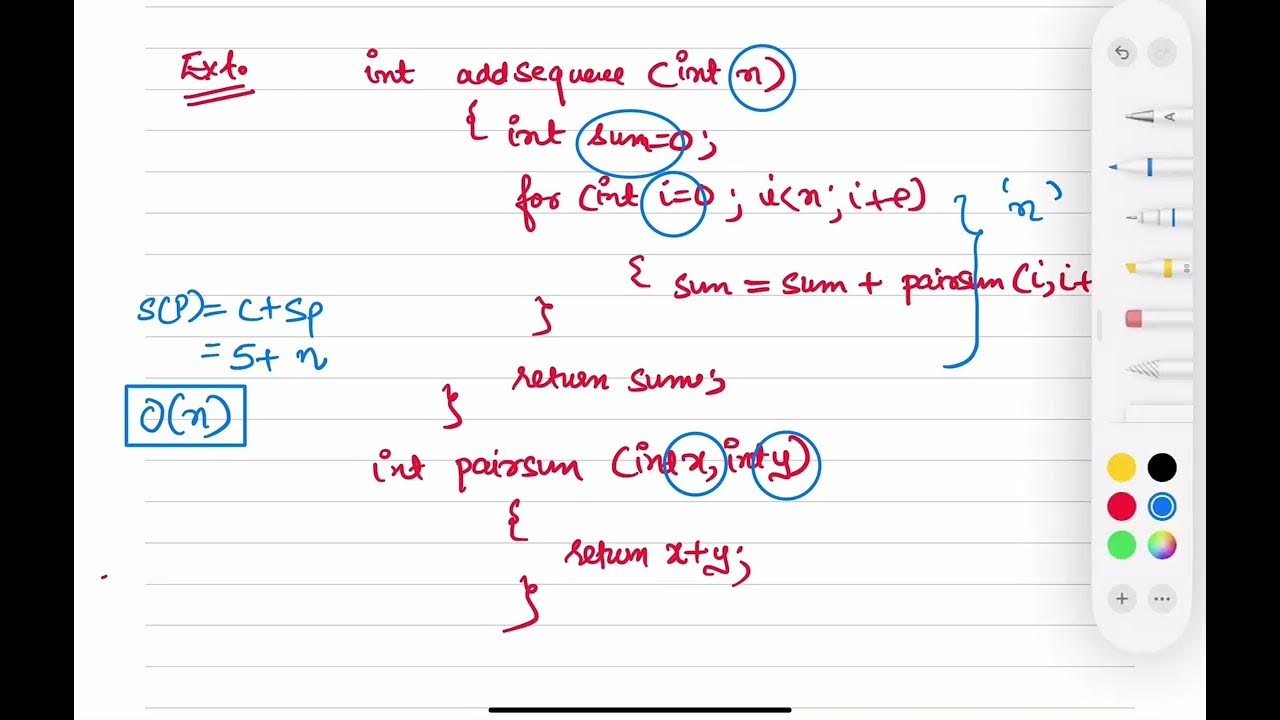 Ex1.
int addsequence (int n)
{ int sum=0;
for (int i=0; i<n; i++)
'n'
{ sum = sum + pairsum (i, i+
}
S(P) = C+Sp
= 5+ n
O(n)
return sum;
}
int pairsum (int x, int y)
{
return x+y;
}
A
80